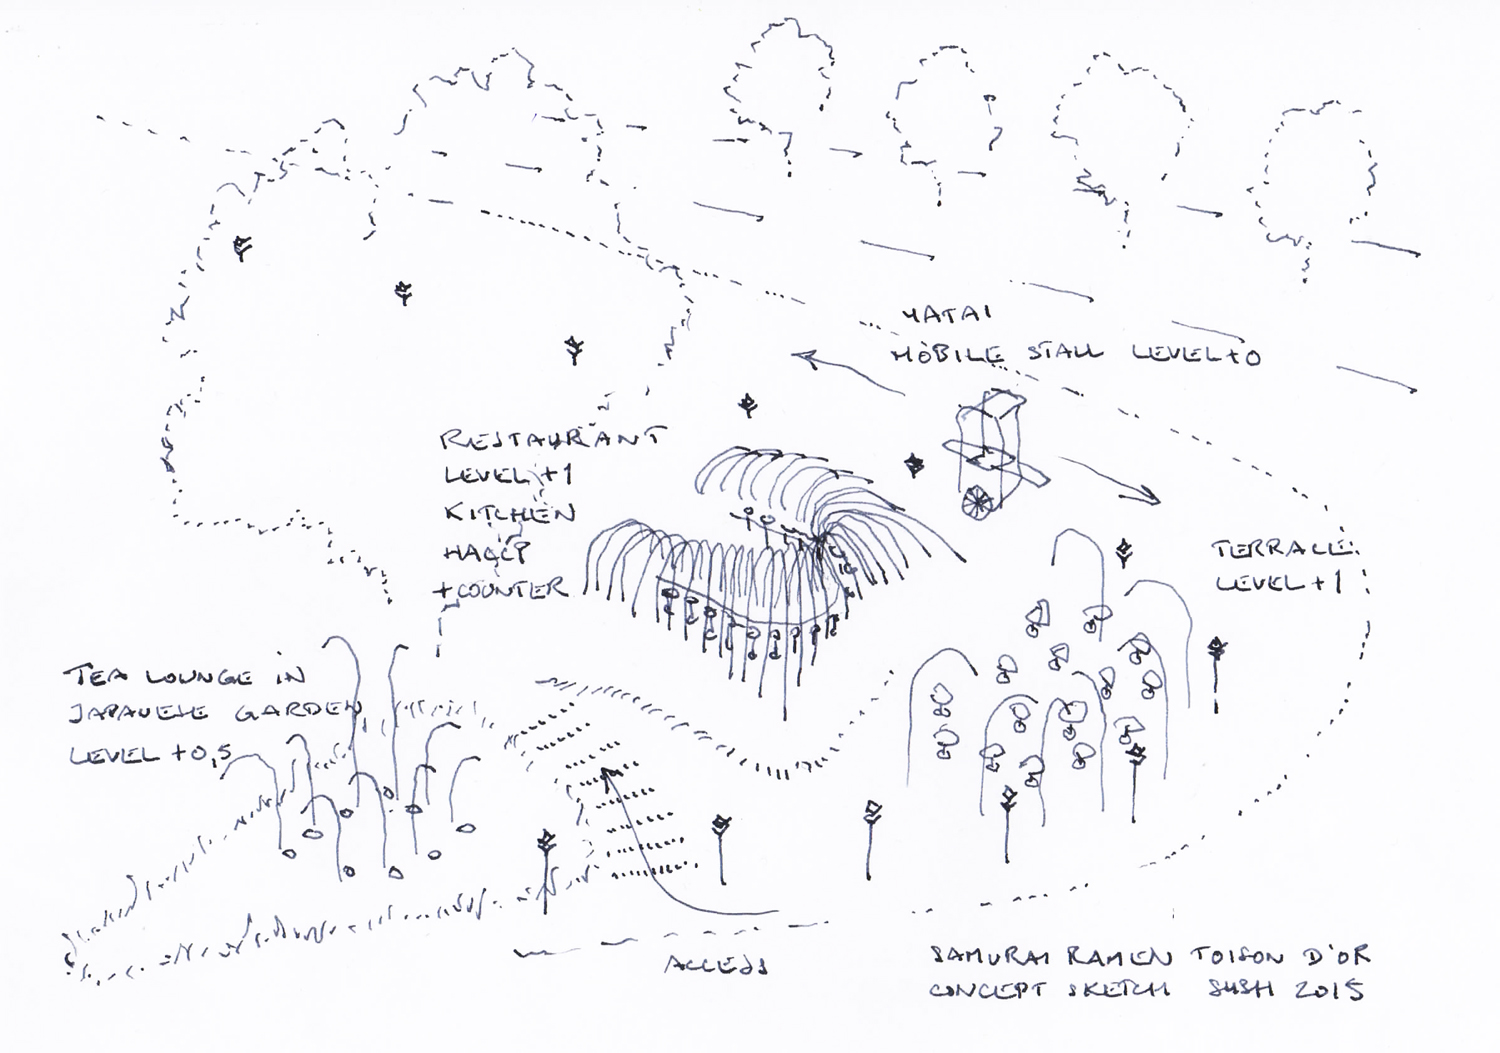 YATAI
MOBILE STALL LEVEL +0
RESTAURANT
LEVEL +1
KITCHEN
HACCP
+COUNTER
TERRACE
LEVEL +1
TEA LOUNGE IN
JAPANESE GARDEN
LEVEL +0,5
ACCESS
SAMURAI RAMEN TOISON D'OR
CONCEPT SKETCH SUSH 2015